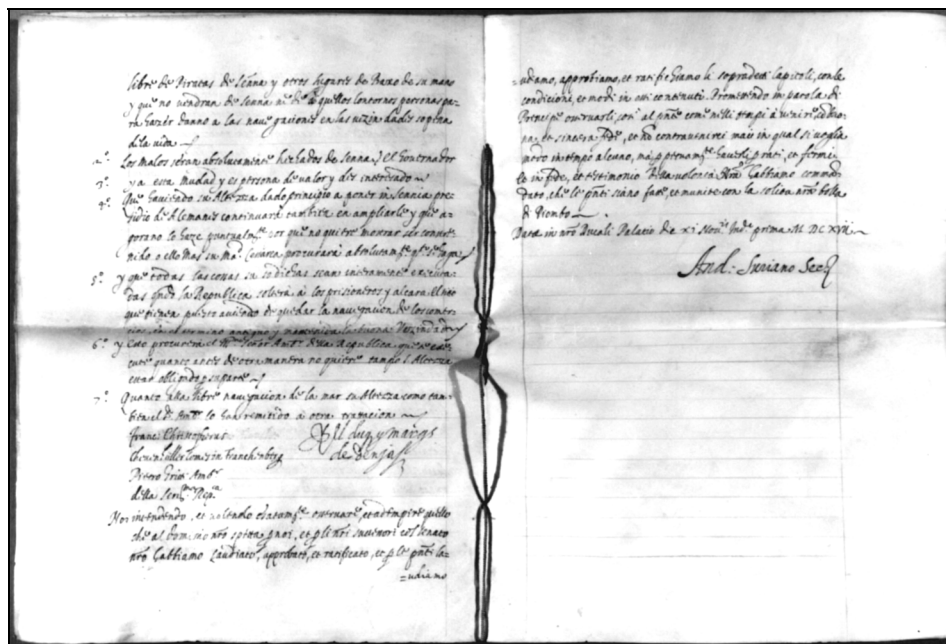 libre de Piratas de Senna y otros lugares de Baxo de su mano
y que no uendran de Senna ni de aquellos contornos personas pa-
ra hazer danno a las nauegaciones en las uizindades so pena
de la uida
2º. Los malos seran absolutamente hechados de Senna, y el Gouernador
3º. ya esta mudad y es persona de valor y des interesado
4º. Que hauiendo su Alteza dado principio a poner in Senna pre-
sidio de Alemanes continuara tambien en ampliarle y que a-
gora no le haze puntualmte por que no quiere mostrar ser conue-
nido a ello mas su Mad. Cesarea procurara absolutamte qe se haga
5º. y que todas las cosas su so dichas sean enteramente executa-
das qndo la Republica soltera a los prisioneros y alcara
que tienen puesto auiendo de quedar la nauegacion de los comer-
cios en el termino antiguo y mantenida la buona Vezindad
6º. y esto procurera el Sr. Ambr. de la Republica que se exe-
cute quanto antes de otra manera no quiere tanpo S. Alteza
estar obligado p su parte
7º. Quanto a la libre nauigacion de la mar su Alteza como tam-
bien el dº. Ambr. lo han remitido a otra tratacion
Franc. Christophorus
Kheuenhüller Comes in Franchenberg
El duq y marqs
de Benja
Pietro Griti Ambr.
della Serma. Repca.
Noi intendendo, et uolendo osseruare, et adempire quello
che al Dominio nro spetta, p noi, et p li nri successori col Senato
nro habbiamo laudato, approbato, et ratificato, et p le pnti la-
=udiamo
=udiamo, approbiamo, et ratifichiamo li sopradetti capitoli, con le
condicioni, et modi in essi contenuti. Promettendo in parola di
Prencipe osseruarli, così al pnte come nelli tempi à uenire, di buo-
na, et sincera fede, et no contrauenirci mai in qual si uoglia
modo in tempo alcuno, mà p hauerli grati, et fermi
Et in fede, et testimonio della uolontà nra habbiamo comman-
dato, che le pnti siano fatte, et munite con la solita nra bolla
di Piombo
Data in nro Ducali Palatio die xi Nouis Inde prima M DC XVII
And: Suriano Secrio